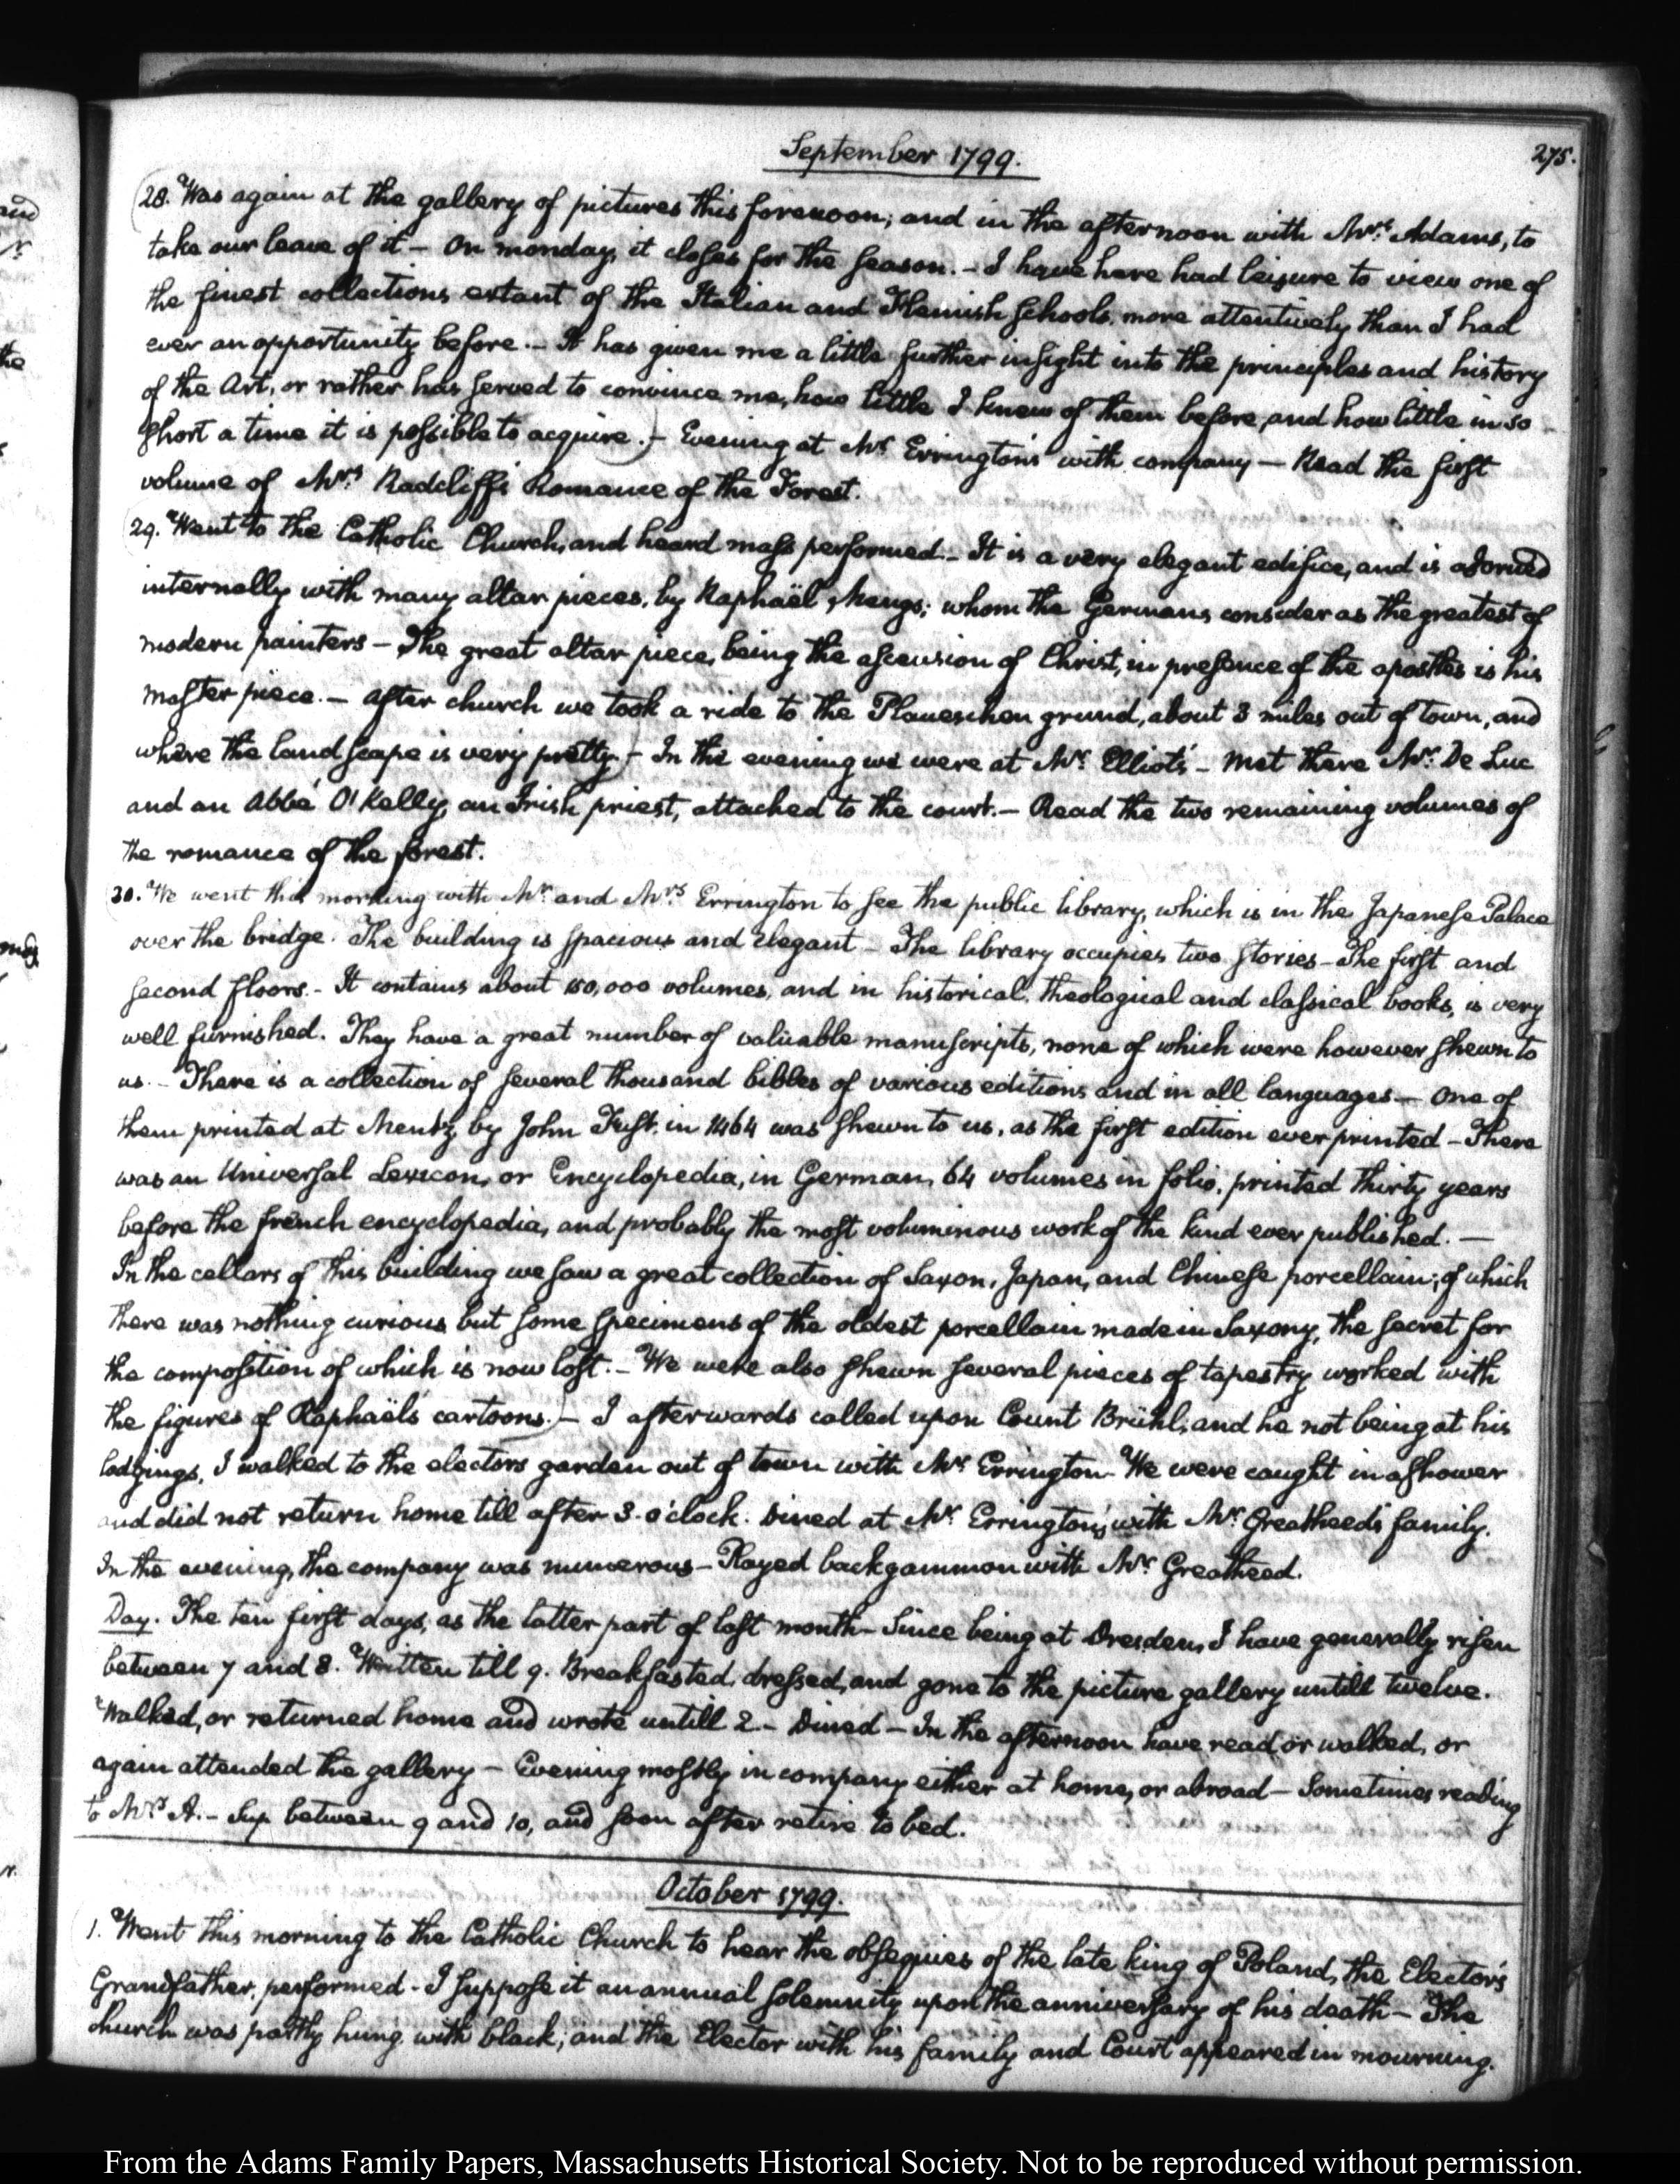 September 1799.
275.
28. Was again at the gallery of pictures this forenoon; and in the afternoon with Mrs. Adams, to
take our leave of it – On monday, it closes for the season. – I have here had leisure to view one of
the finest collections extant of the Italian and Flemish Schools, more attentively than I had
ever an opportunity before. – It has given me a little further insight into the principles and history
of the Art, or rather has served to convince me, how little I knew of them before, and how little in so
short a time it is possible to acquire.) – Evening at Mr. Errington's with company – Read the first
volume of Mrs. Radcliff's Romance of the Forest.
(29. Went to the Catholic Church, and heard mass performed – It is a very elegant edifice, and is adorned
internally with many altar pieces, by Raphaël Mengs; whom the Germans consider as the greatest of
modern painters – The great altar piece, being the ascension of Christ, in presence of the apostles is his
master piece. – After church we took a ride to the Plaueschen grund, about 3 miles out of town, and
where the landscape is very pretty) – In the evening we were at Mr. Elliot's – Met there Mr. De Luc
and an Abbé O'Kelly, an Irish priest, attached to the court. – Read the two remaining volumes of
the romance of the forest.
(30. We went this morning with Mr. and Mrs. Errington to see the public library, which is in the Japanese Palace
over the bridge. The building is spacious and elegant – The library occupies two stories – The first and
second floors. – It contains about 150,000 volumes, and in historical, theological and classical books, is very
well furnished. They have a great number of valuable manuscripts, none of which were however shewn to
us. – There is a collection of several thousand bibles of various editions and in all languages – One of
them printed at Mentz, by John Fust, in 1464 was shewn to us, as the first edition ever printed – There
was an Universal Lexicon, or Encyclopedia, in German, 64 volumes in folio, printed thirty years
before the french encyclopedia, and probably the most voluminous work of the kind ever published. –
In the cellars of this building we saw a great collection of Saxon, Japan, and Chinese porcellain; of which
there was nothing curious but some specimens of the oldest porcellain made in Saxony, the secret for
the composition of which is now lost. – We were also shewn several pieces of tapestry worked with
the figures of Raphaël's cartoons.) – I afterwards called upon Count Brühl, and he not being at his
lodgings, I walked to the electors garden out of town with Mr. Errington – We were caught in a shower
and did not return home till after 3. o'clock. Dined at Mr. Errington's, with Mr. Greatheed's family.
In the evening, the company was numerous – Played backgammon with Mr. Greatheed.
Day. The ten first days, as the latter part of last month – Since being at Dresden, I have generally risen
between 7 and 8. Written till 9. Breakfasted, dressed, and gone to the picture gallery untill twelve.
Walked, or returned home and wrote untill 2 – Dined – In the afternoon have read or walked, or
again attended the gallery – Evening mostly in company either at home, or abroad – Sometimes reading
to Mrs. A. – Sup between 9 and 10, and soon after retire to bed.
October 1799.
1. Went this morning to the Catholic Church to hear the obsequies of the late king of Poland, the Elector's
Grandfather, performed – I suppose it an annual solemnity upon the anniversary of his death – The
church was partly hung with black; and the Elector with his family and Court appeared in mourning.
From the Adams Family Papers, Massachusetts Historical Society. Not to be reproduced without permission.